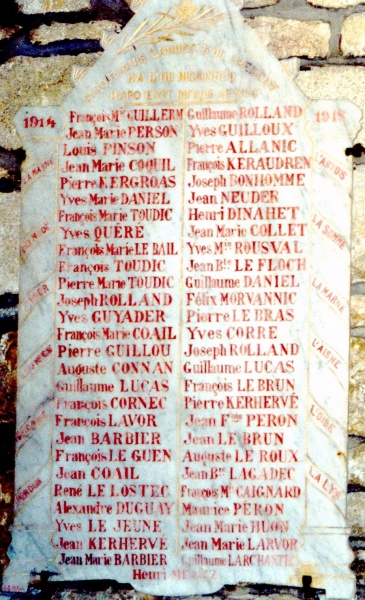 1914 1918
François Mie GUILLERM Guillaume ROLLAND
Jean Marie PERSON Yves GUILLOUX
Louis PINSON Pierre ALLANIC
Jean Marie COQUIL François KERAUDREN
Pierre KERGROAS Joseph BONHOMME
Yves Marie DANIEL Jean NEUDER
François Marie TOUDIC Henri DINAHET
Yves QUÉRÉ Jean Marie COLLET
François Marie LE BAIL Yves Mie ROUSVAL
François TOUDIC Jean Bte LE FLOCH
Pierre Marie TOUDIC Guillaume DANIEL
Joseph ROLLAND Félix MORVANNIC
Yves GUYADER Pierre LE BRAS
François Marie COAIL Yves CORRE
Pierre GUILLOU Joseph ROLLAND
Auguste CONNAN Guillaume LUCAS
Guillaume LUCAS François LE BRUN
François CORNEC Pierre KERHERVÉ
François LAVOR Jean Fçois PERON
Jean BARBIER Jean LE BRUN
François LE GUEN Auguste LE ROUX
Jean COAIL Jean Bte LAGADEC
René LE LOSTEC François Mie CAIGNARD
Alexandre DUGUAY Maurice PERON
Yves LE JEUNE Jean Marie HUON
Jean KERHERVÉ Jean Marie LARVOR
Jean Marie BARBIER Guillaume
Henri
LA MARNE
ARTOIS
LA SOMME
LA MARNE
L'AISNE
L'OISE
LA LYS